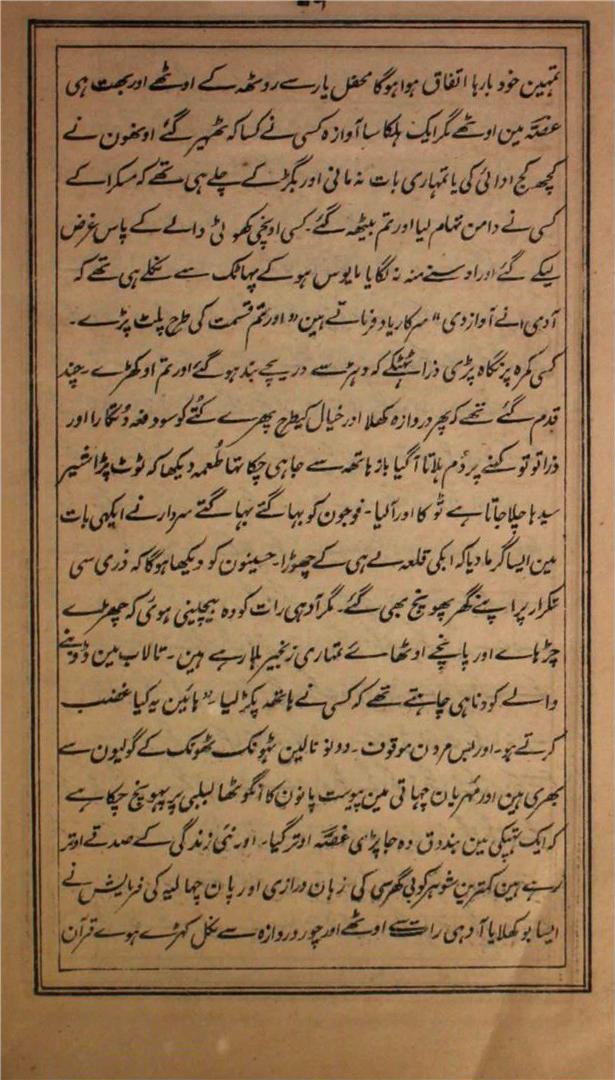 تمہین خود بارہا اتفاق ہوا ہوگا محفل یار سے روٹھہ کے اوٹھے اور بھت ہی
غصّہ مین اوٹھے مگر ایک ہلکا سا آوازہ کسی نے کسا کہ ٹھہیر گئے اونھون نے
کچھہ کج ادائی کی یا تمہاری بات نہ مانی اور بگڑ کے چلے ہی تھے کہ مسکرا کے
کسی نے دامن تہام لیا اور تم بیٹھہ گئے۔ کسی اونچی کھوٹی والے کے پاس غرض
لیکے گئے اور اوسنے منہ نہ لگایا مایوس ہو کے پہاٹک سے نکلے ہی تھے کہ
آدمی نے آواز دی "سرکار یاد فرماتے ہین" اور تم قسمت کی طرح پلٹ پڑے۔
کسی کمرہ پر نگاہ پڑی ذرا ٹھٹکے کہ دہڑ سے دریچے بند ہوگئے اور تم اوکھڑے۔ چند
قدم گئے تھے کہ پھر دروازہ کھلا اور خیال کیطرح پھرے کُتّے کو سو دفعہ دُتکارا اور
ذرا تو تو کہنے پر دُم ہلاتا آگیا باز ہاتھہ سے جا ہی چکا تہا طُعمہ دیکھا کہ ٹوٹ پڑا شیر
سیدہا چلا جاتا ہے ٹوکا اور آلیا۔ فوجون کو بہاگتے بہاگتے سردار نے ایکہی بات
مین ایسا گرما دیا کہ ابکی قلعہ لے ہی کے چھوڑا۔ حسینون کو دیکھا ہوگا کہ ذری سی
تکرار پر اپنے گھر پھونچ بھی گئے۔ مگر آدہی رات کو وہ بیچینی ہوئی کہ چھڑے
چڑہاے اور پانچے اوٹھائے تمہاری زنجیر ہلا رہے ہین۔ تالاب مین ڈوبنے
والے کودنا ہی چاہتے تھے کہ کسی نے ہاتھہ پکڑ لیا۔ "ہائین یہ کیا غضب
کرتے ہو۔ اور بس مردن موقوف۔ دو نو نالین ٹہونک ٹھونک کے گولیون سے
بھری ہین اور مُہریان چہاتی مین پیوست پانون کا انگوٹھا لبلبی پر پہونچ چکا ہے
کہ ایک تہپکی مین بندوق وہ جا پڑی غصّہ اوتر گیا۔ اور نئی زندگی کے صدقے اوتر
رہے ہین کمترین شوہر کو بی گھرسی کی زبان درازی اور پان چہالیہ کی فرمایش نے
ایسا بوکھلایا آدہی رات سے اوٹھے اور چور دروازہ سے نکل کہڑے ہوے قرآن